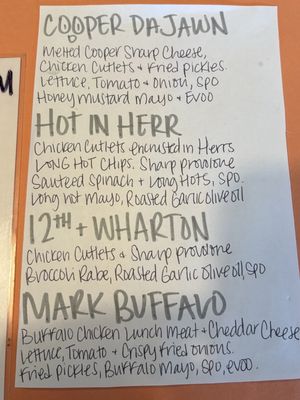 COOPER DAJAWN
Melted Cooper Sharp Cheese,
Chicken Cutlets + Fried pickles.
Lettuce, Tomato + Onion, SPO
Honey mustard mayo + EVOO
HOT IN HERR
Chicken Cutlets encrusted in Herrs
LONG HOT CHIPS. Sharp provolone
Sauteed Spinach + Long HOTS, SPO.
Long hot Mayo, Roasted Garlic olive oil
12TH + WHARTON
Chicken Cutlets + Sharp provolone
Broccoli Rabe, Roasted Garlic olive oil, SPO
MARK BUFFALO
Buffalo Chicken Lunch meat + Cheddar Cheese
Lettuce, Tomato + Crispy Fried onions.
Fried pickles, Buffalo Mayo, SPO, evoo.